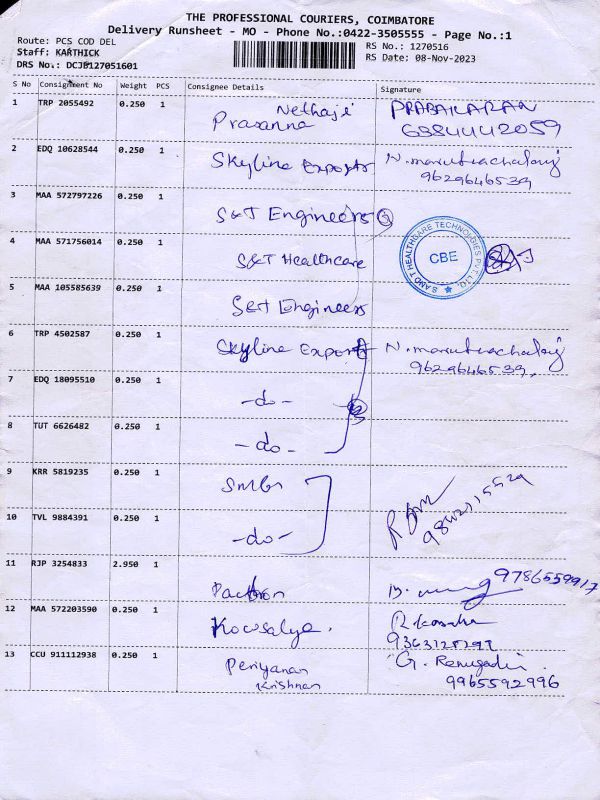 THE PROFESSIONAL COURIERS, COIMBATORE
Delivery Runsheet - MO - Phone No.:0422-3505555 - Page No.:1
Route: PCS COD DEL
RS No.: 1270516
Staff: KARTHICK
RS Date: 08-Nov-2023
DRS No.: DCJB127051601
S No Consignment No Weight PCS Consignee Details Signature
1 TRP 2055492 0.250 1 Nethaji PRABAKARAN
Prasanna 6384442059
2 EDQ 10628544 0.250 1 Skyline Exports N. maruthachalaj
9629646539
3 MAA 572797226 0.250 1 S&T Engineers
4 MAA 571756014 0.250 1 S&T Healthcare
S AND T HEALTHCARE TECHNOLOGIES PVT. LTD.
CBE
5 MAA 105585639 0.250 1 S&T Engineers
6 TRP 4502587 0.250 1 Skyline Exports N. maruthachalaj
9629646539
7 EDQ 18095510 0.250 1 -do-
8 TUT 6626482 0.250 1 -do-
9 KRR 5819235 0.250 1
10 TVL 9884391 0.250 1 -do-
11 RJP 3254833 2.950 1 9786559917
12 MAA 572203590 0.250 1 Kowsalya.
13 CCU 911112938 0.250 1 Periyanan G.
Krishnan 9965592996